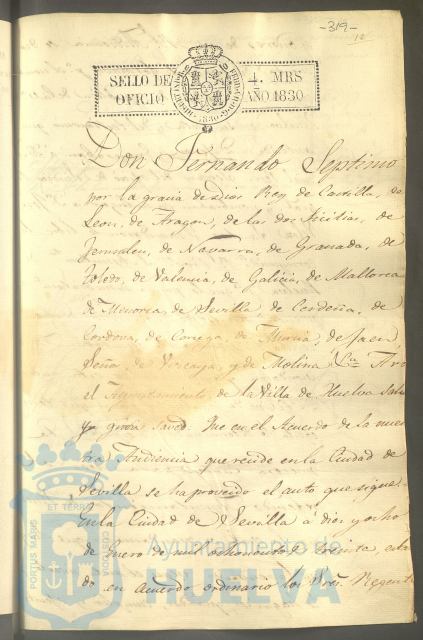 -319-
SELLO DE 4. MRS
OFICIO AÑO 1830
Don Fernando Septimo
por la gracia de Dios Rey de Castilla, de
Leon, de Aragon, de las dos Sicilias, de
Jerusalen, de Navarra, de Granada, de
Toledo, de Valencia, de Galicia, de Mallorca
de Menorca, de Sevilla, de Cerdeña, de
Cordova, de Corcega, de Murcia, de Jaen,
Señor de Vizcaya, y de Molina &c.
el Ayuntamiento de la Villa de Huelva salud
y gracia Saved. Que en el Acuerdo de la nues
tra Audiencia que reside en la Ciudad de
Sevilla se ha proveido el auto que sigue.
En la Ciudad de Sevilla a diez y ocho
de Enero de mil ochocientos treinta, estan
do en Acuerdo ordinario los Sres. Regente
PORTUS MARIS
ET TERRÆ
CUSTODIA
Ayuntamiento de
HUELVA